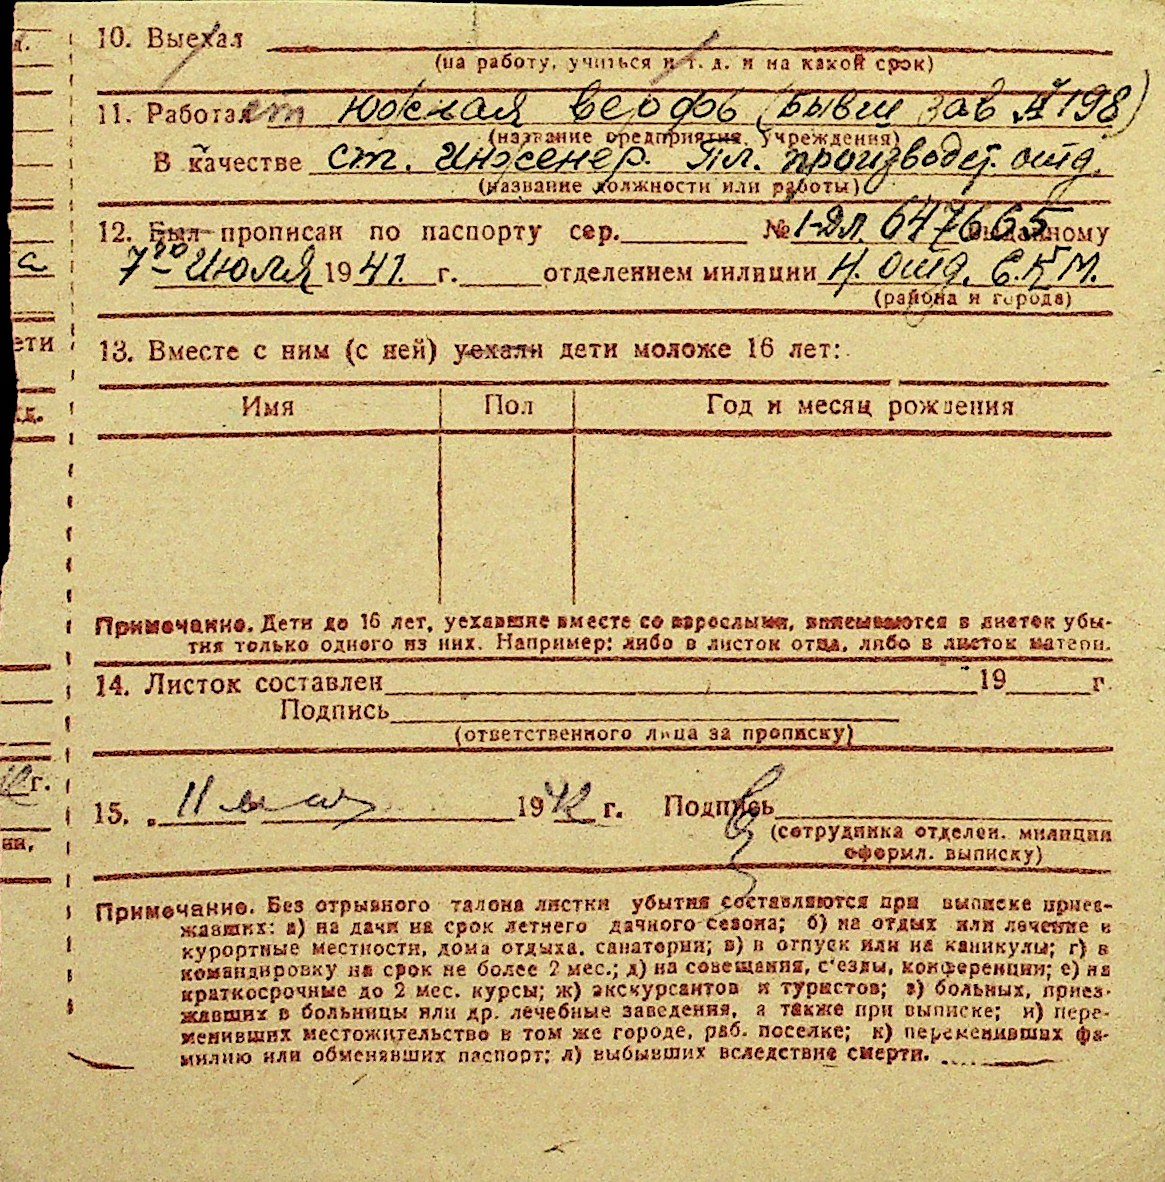 10. Выехал
(на работу, учиться и т. д. и на какой срок)
11. Работает Южная верфь (бывш зав № 198)
(название предприятия, учреждения)
В качестве ст. Инженер. Пл. производст. отд.
(название должности или работы)
12. Был прописан по паспорту сер. № 1-Дл. 647665 выданному
7го Июля 1941 г. отделением милиции Н. отд.
(района и города)
13. Вместе с ним (с ней) уехали дети моложе 16 лет:
Имя Пол Год и месяц рождения
Примечание. Дети до 16 лет, уехавшие вместе со взрослыми, вписываются в листок убы-
тия только одного из них. Например: либо в листок отца, либо в листок матери.
14. Листок составлен 19 г.
Подпись
(ответственного лица за прописку)
15. 11 мая 1942 г. Подпись
(сотрудника отделен. милиции
оформл. выписку)
Примечание. Без отрывного талона листки убытия составляются при выписке приез-
жавших: а) на дачи на срок летнего дачного сезона; б) на отдых или лечение в
курортные местности, дома отдыха, санатории; в) в отпуск или на каникулы; г) в
командировку на срок не более 2 мес.; д) на совещания, с'езды, конференции; е) на
краткосрочные до 2 мес. курсы; ж) экскурсантов и туристов; з) больных, приез-
жавших в больницы или др. лечебные заведения, а также при выписке; и) пере-
менивших местожительство в том же городе, раб. поселке; к) переменивших фа-
милию или обменявших паспорт; л) выбывших вследствие смерти.